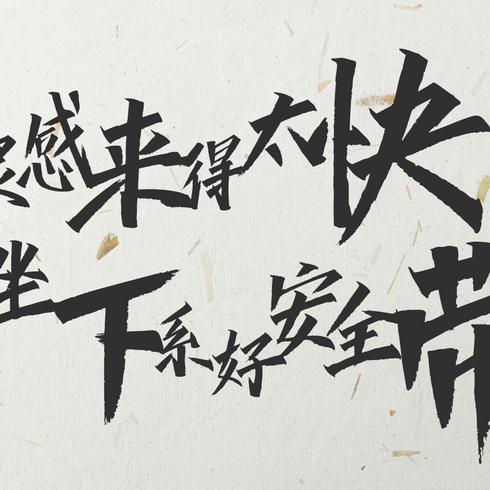 灵感来得太快
坐下系好安全带